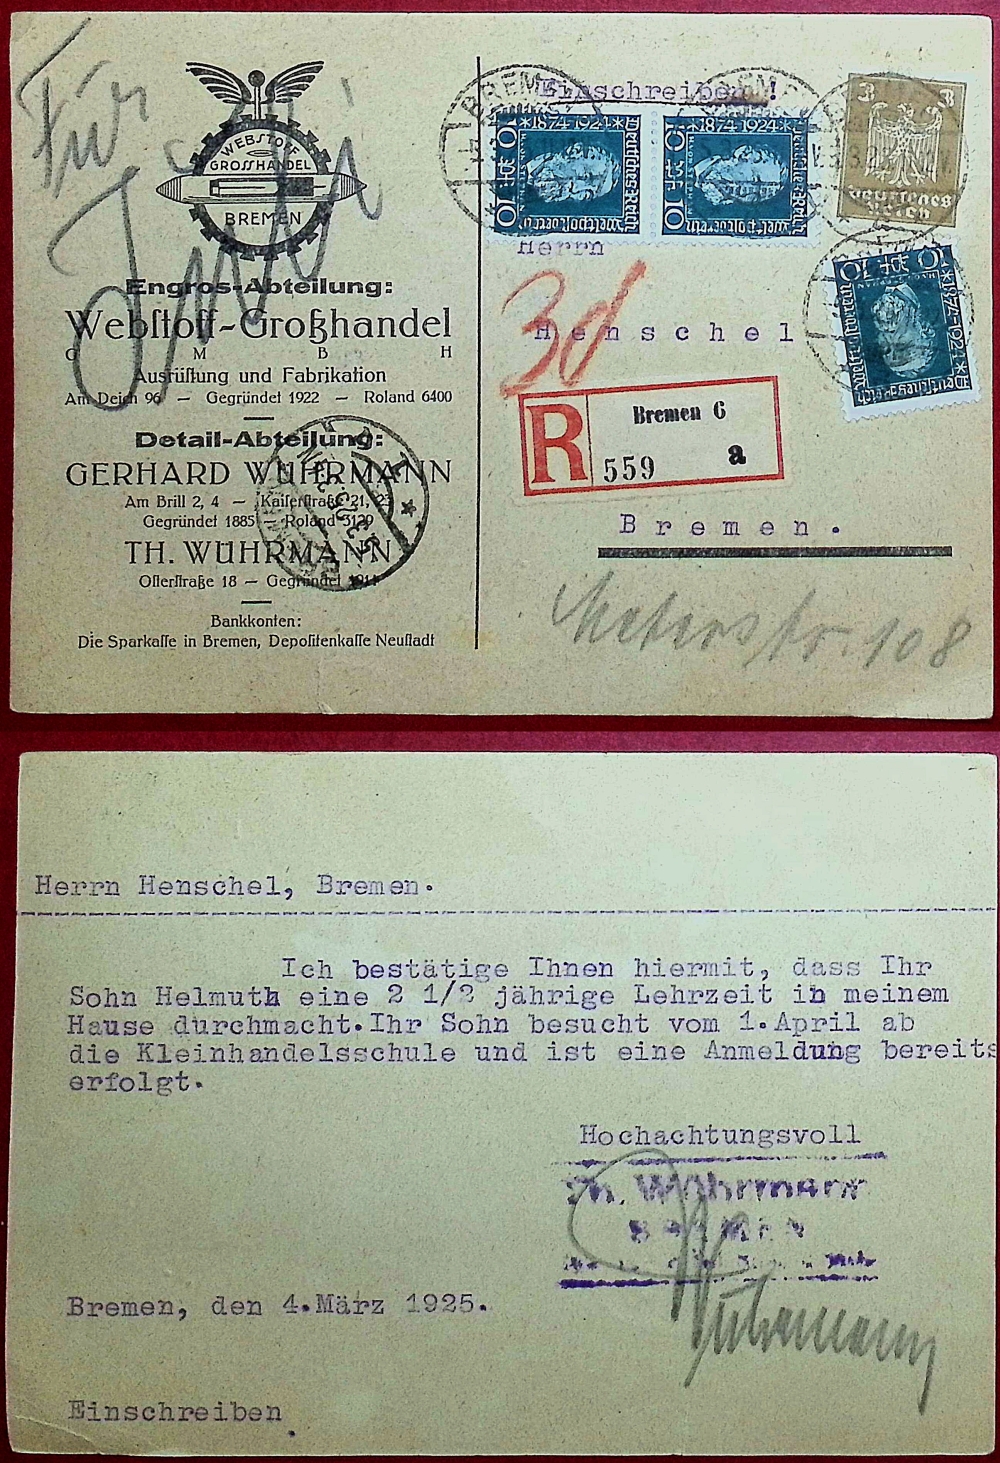 Für
WEBSTOFF
GROSSHANDEL
BREMEN
Engros-Abteilung:
Webstoff-Großhandel
G M B H
Ausrüstung und Fabrikation
Am Deich 96 — Gegründet 1922 — Roland 6400
Detail-Abteilung:
GERHARD WÜHRMANN
Am Brill 2, 4 — Kaiserstraße 21, 23
Gegründet 1885 — Roland 3129
TH. WÜHRMANN
Osterstraße 18 — Gegründet 1911
Bankkonten:
Die Sparkasse in Bremen, Depositenkasse Neustadt
Einschreiben !
BREMEN
*1874-1924*
Deutsches Reich
Weltpostverein
10
10
*1874-1924*
Deutsches Reich
Weltpostverein
10
10
3 3
Deutsches
Reich
10 10
*1874-1924*
Deutsches Reich
Weltpostverein
Herrn
Henschel
30
R
Bremen 6
559 a
Bremen.
Meterstr. 108
Herrn Henschel, Bremen.
Ich bestätige Ihnen hiermit, dass Ihr
Sohn Helmuth eine 2 1/2 jährige Lehrzeit in meinem
Hause durchmacht.Ihr Sohn besucht vom 1.April ab
die Kleinhandelsschule und ist eine Anmeldung bereits
erfolgt.
Hochachtungsvoll
Th. Wührmann
BREMEN
Wührmann
Bremen, den 4.März 1925.
Einschreiben